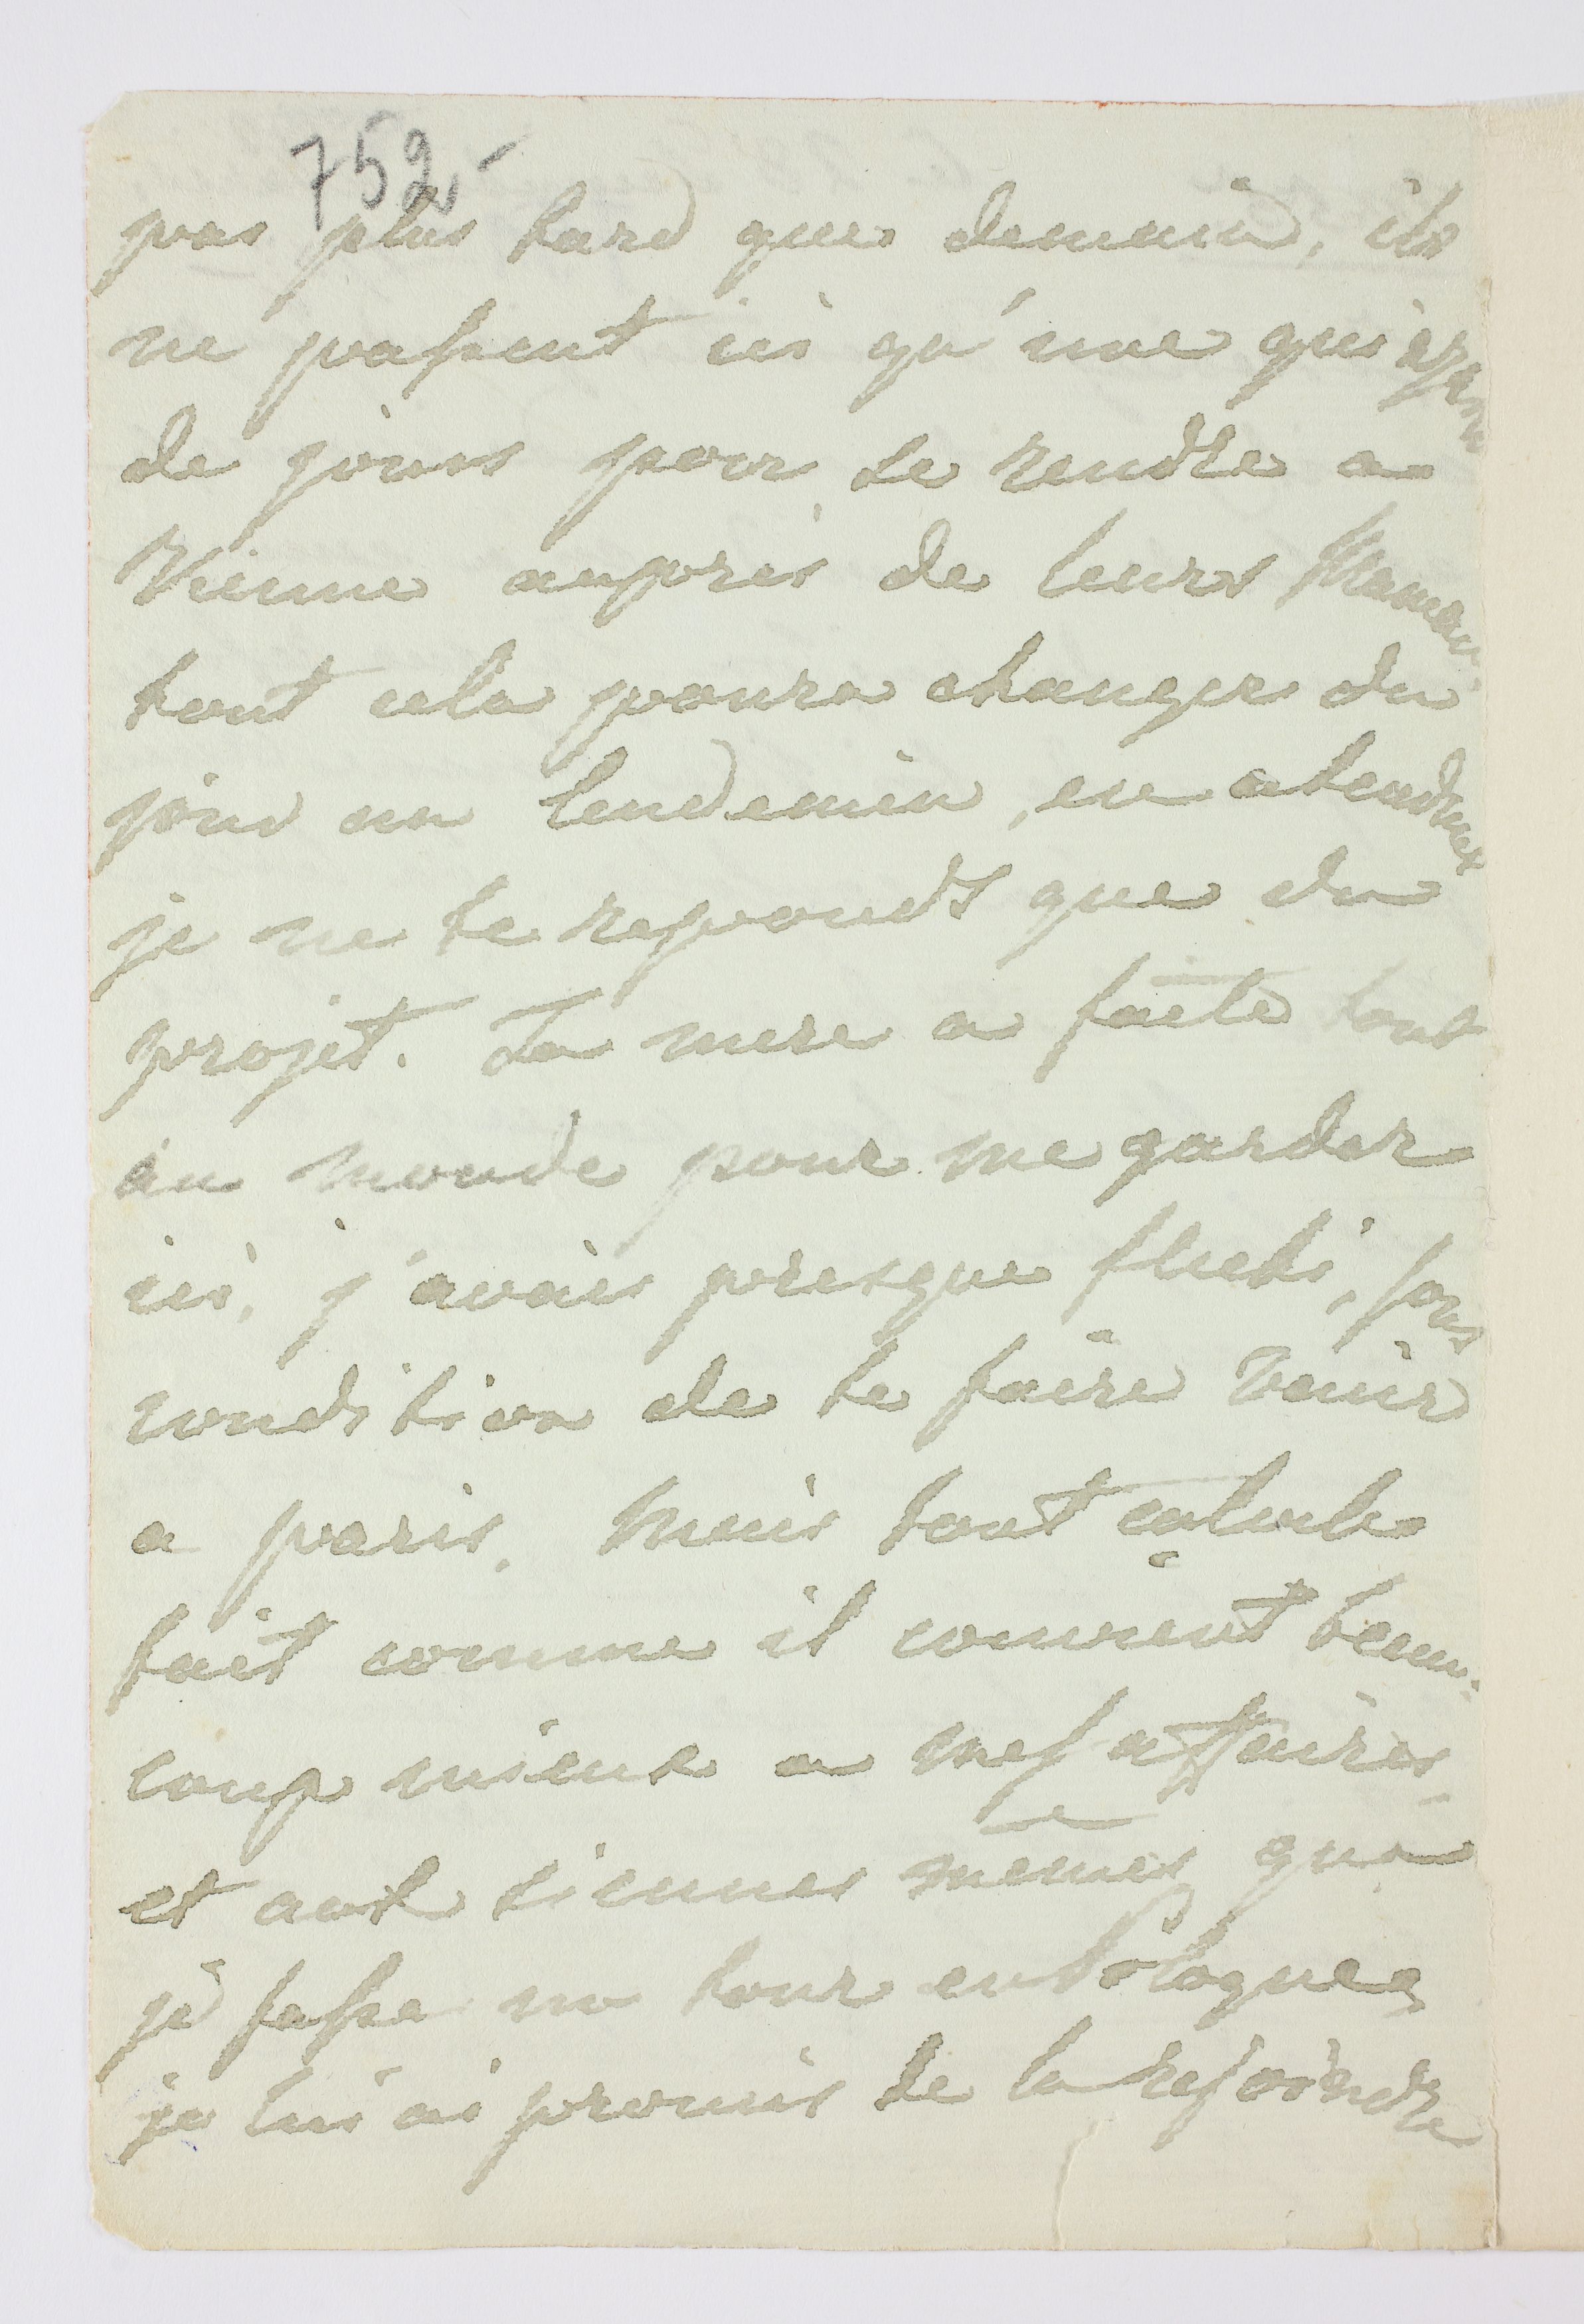 752
pas plus tard que demain, ils
ne passent ici qu'une quinzaine
de jours pour se rendre a
Vienne aupres de leurs Maman.
tout cela poura changer du
jour au lendemin, en atendant
je ne te repondt que du
projet. Ta mere a faite tout
au monde pour me garder
ici, j'avais presque flechi, sous
condition de te faire venir
a paris. Mais tout calcule
fait comme il convient beau-
coup mieux a mes affaires
et aux tiennes mêmes que
je fasse un tour en Pologne
je lui ai promis de la rejoindre